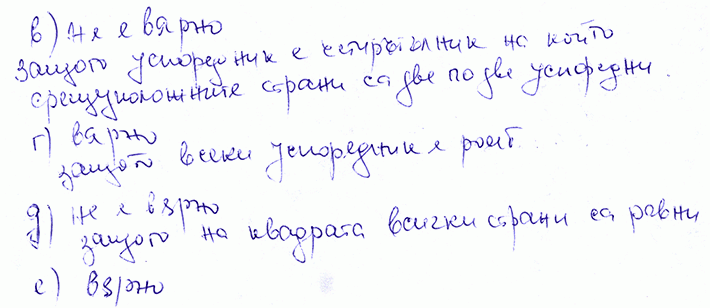 в) Не е вярно
защото успоредник е четириъгълник на който
срещуположните страни са две по две успоредни.
г) вярно
защото всеки успоредник е ромб
д) Не е вярно
защото на квадрата всички страни са равни
е) вярно